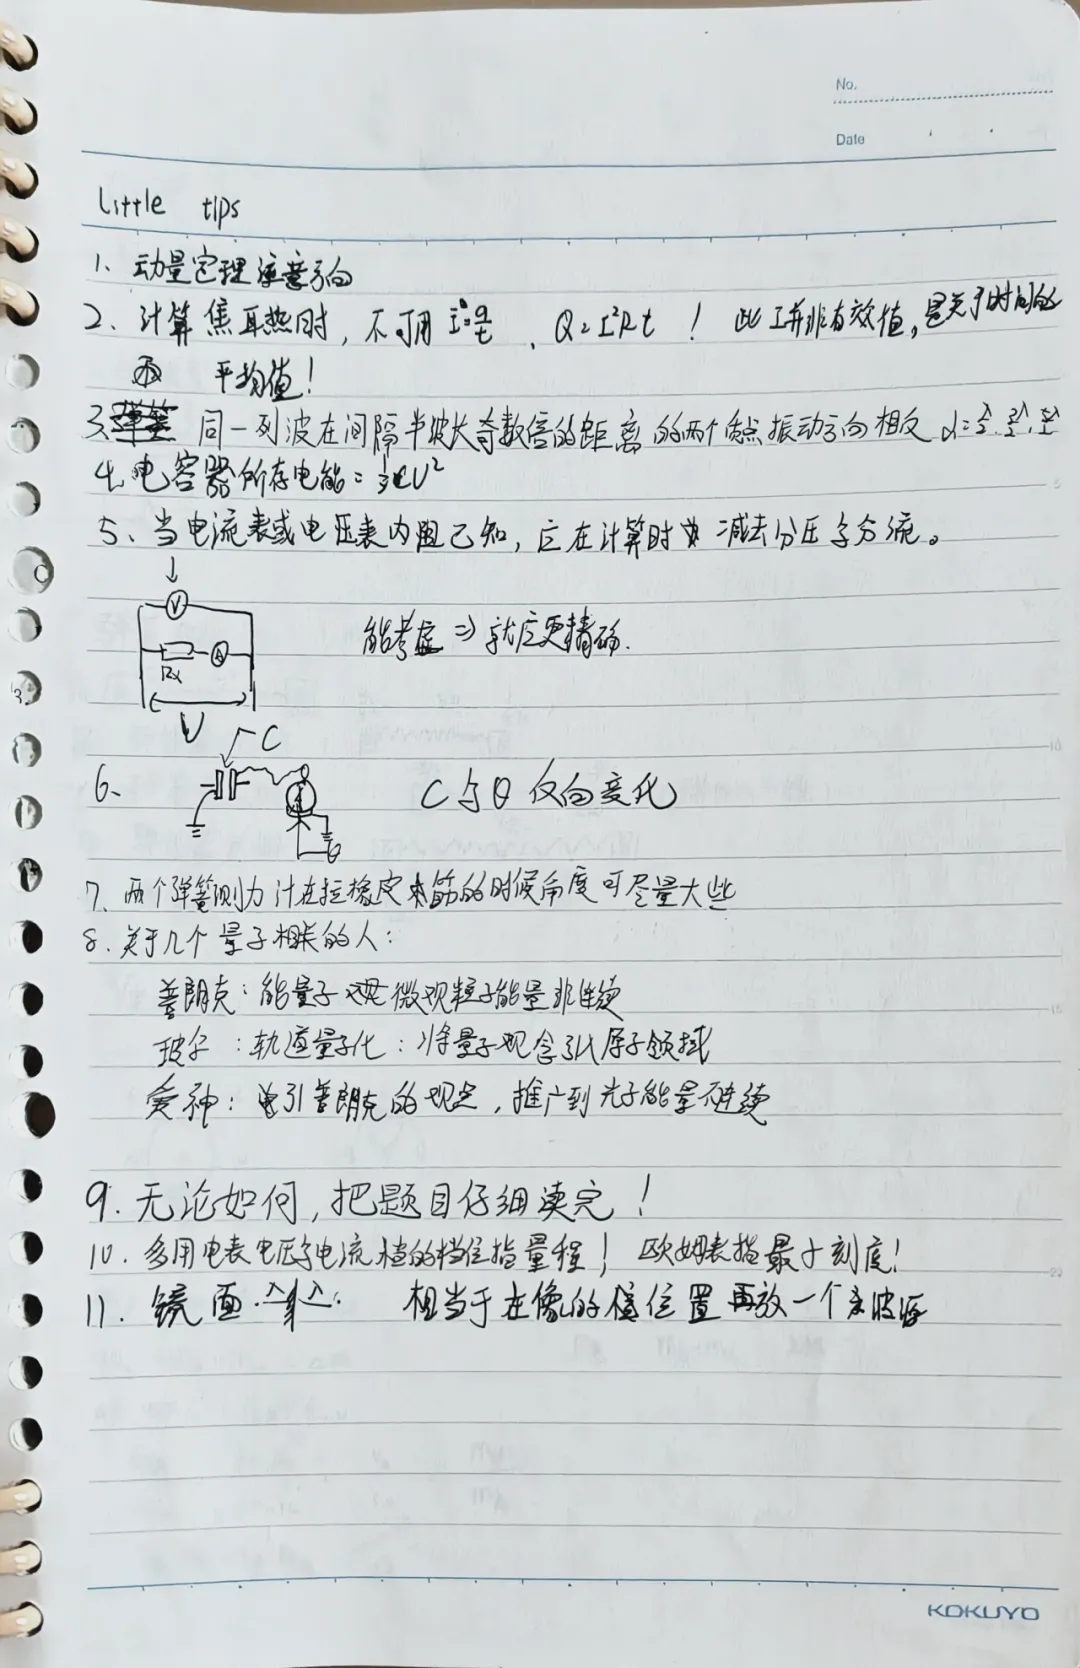 No.
Date
Little tips
1、动量定理注意方向
2、计算焦耳热时，不可用 I=q/t ，Q=I²Rt ！ 此I并非有效值，是关于时间的
平均值！
3. 同一列波在间隔半波长奇数倍的距离的两个质点振动方向相反 d=λ/2.
4.电容器所存电能=½CU²
5、当电流表或电压表内阻已知，应在计算时 减去分压与分流。
V
Rx A
能考虑⇒就应更精确.
U
C
6、 C与θ反向变化
7、两个弹簧测力计在拉橡皮筋的时候角度可尽量大些
8.关于几个量子相关的人：
普朗克：能量子观 微观粒子能量非连续
玻尔：轨道量子化：将量子观念引入原子领域
爱神： 引普朗克的观点，推广到光子能量不连续
9.无论如何，把题目仔细读完！
10.多用电表电压与电流档的档位指量程！ 欧姆表指最小刻度！
11.镜面 相当于在像的位置再放一个 波源
KOKUYO